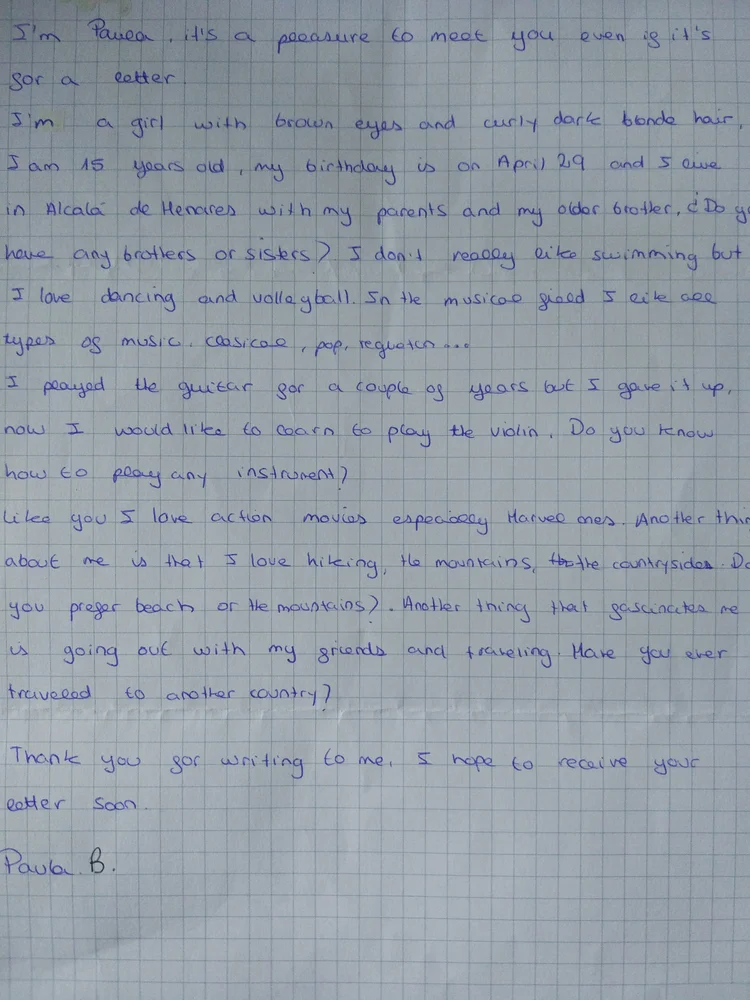 I'm Paula, it's a pleasure to meet you even if it's
for a letter.
I'm a girl with brown eyes and curly dark blonde hair,
I am 15 years old, my birthday is on April 29 and I live
in Alcalá de Henares with my parents and my older brother, ¿Do yo
have any brothers or sisters? I don't really like swimming but
I love dancing and volleyball. In the musical field I like all
types of music. clasical, pop, regueton...
I played the guitar for a couple of years but I gave it up,
now I would like to learn to play the violin. Do you know
how to play any instrument?
Like you I love action movies especially Marvel ones. Another thin
about me is that I love hiking, the mountains, the countrysides. Do
you prefer beach or the mountains?. Another thing that fascinates me
is going out with my friends and traveling. Have you ever
travelled to another country?
Thank you for writing to me, I hope to receive your
letter soon.
Paula B.